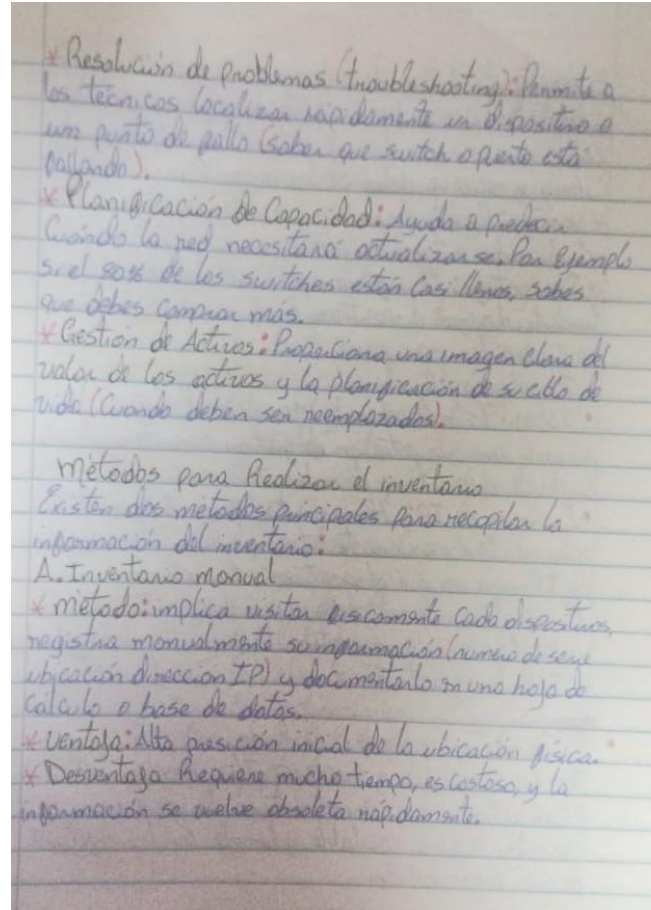 * Resolución de problemas (troubleshooting): Permite a
los técnicos localizar rápidamente un dispositivo o
un punto de fallo (saber que switch o puerto está
fallando).
* Planificación de Capacidad: Ayuda a predecir
Cuándo la red necesitará actualizarse. Por Ejemplo
si el 80% de los switches están Casi llenos, sabes
que debes Comprar más.
* Gestión de Activos: Proporciona una imagen Clara del
valor de los activos y la planificación de su ciclo de
vida (Cuando deben ser reemplazados).
métodos para Realizar el inventario
Existen dos métodos principales Para recopilar la
información del inventario:
A. Inventario manual
* método: implica visitar fisicamente Cada dispositivos,
registra manualmente su información (numero de serie
ubicación dirección IP) y documentarlo en una hoja de
Calculo o base de datos.
* ventaja: Alta presición inicial de la ubicación física.
* Desventaja Requiere mucho tiempo, es Costoso, y la
información se vuelve obsoleta rápidamente.